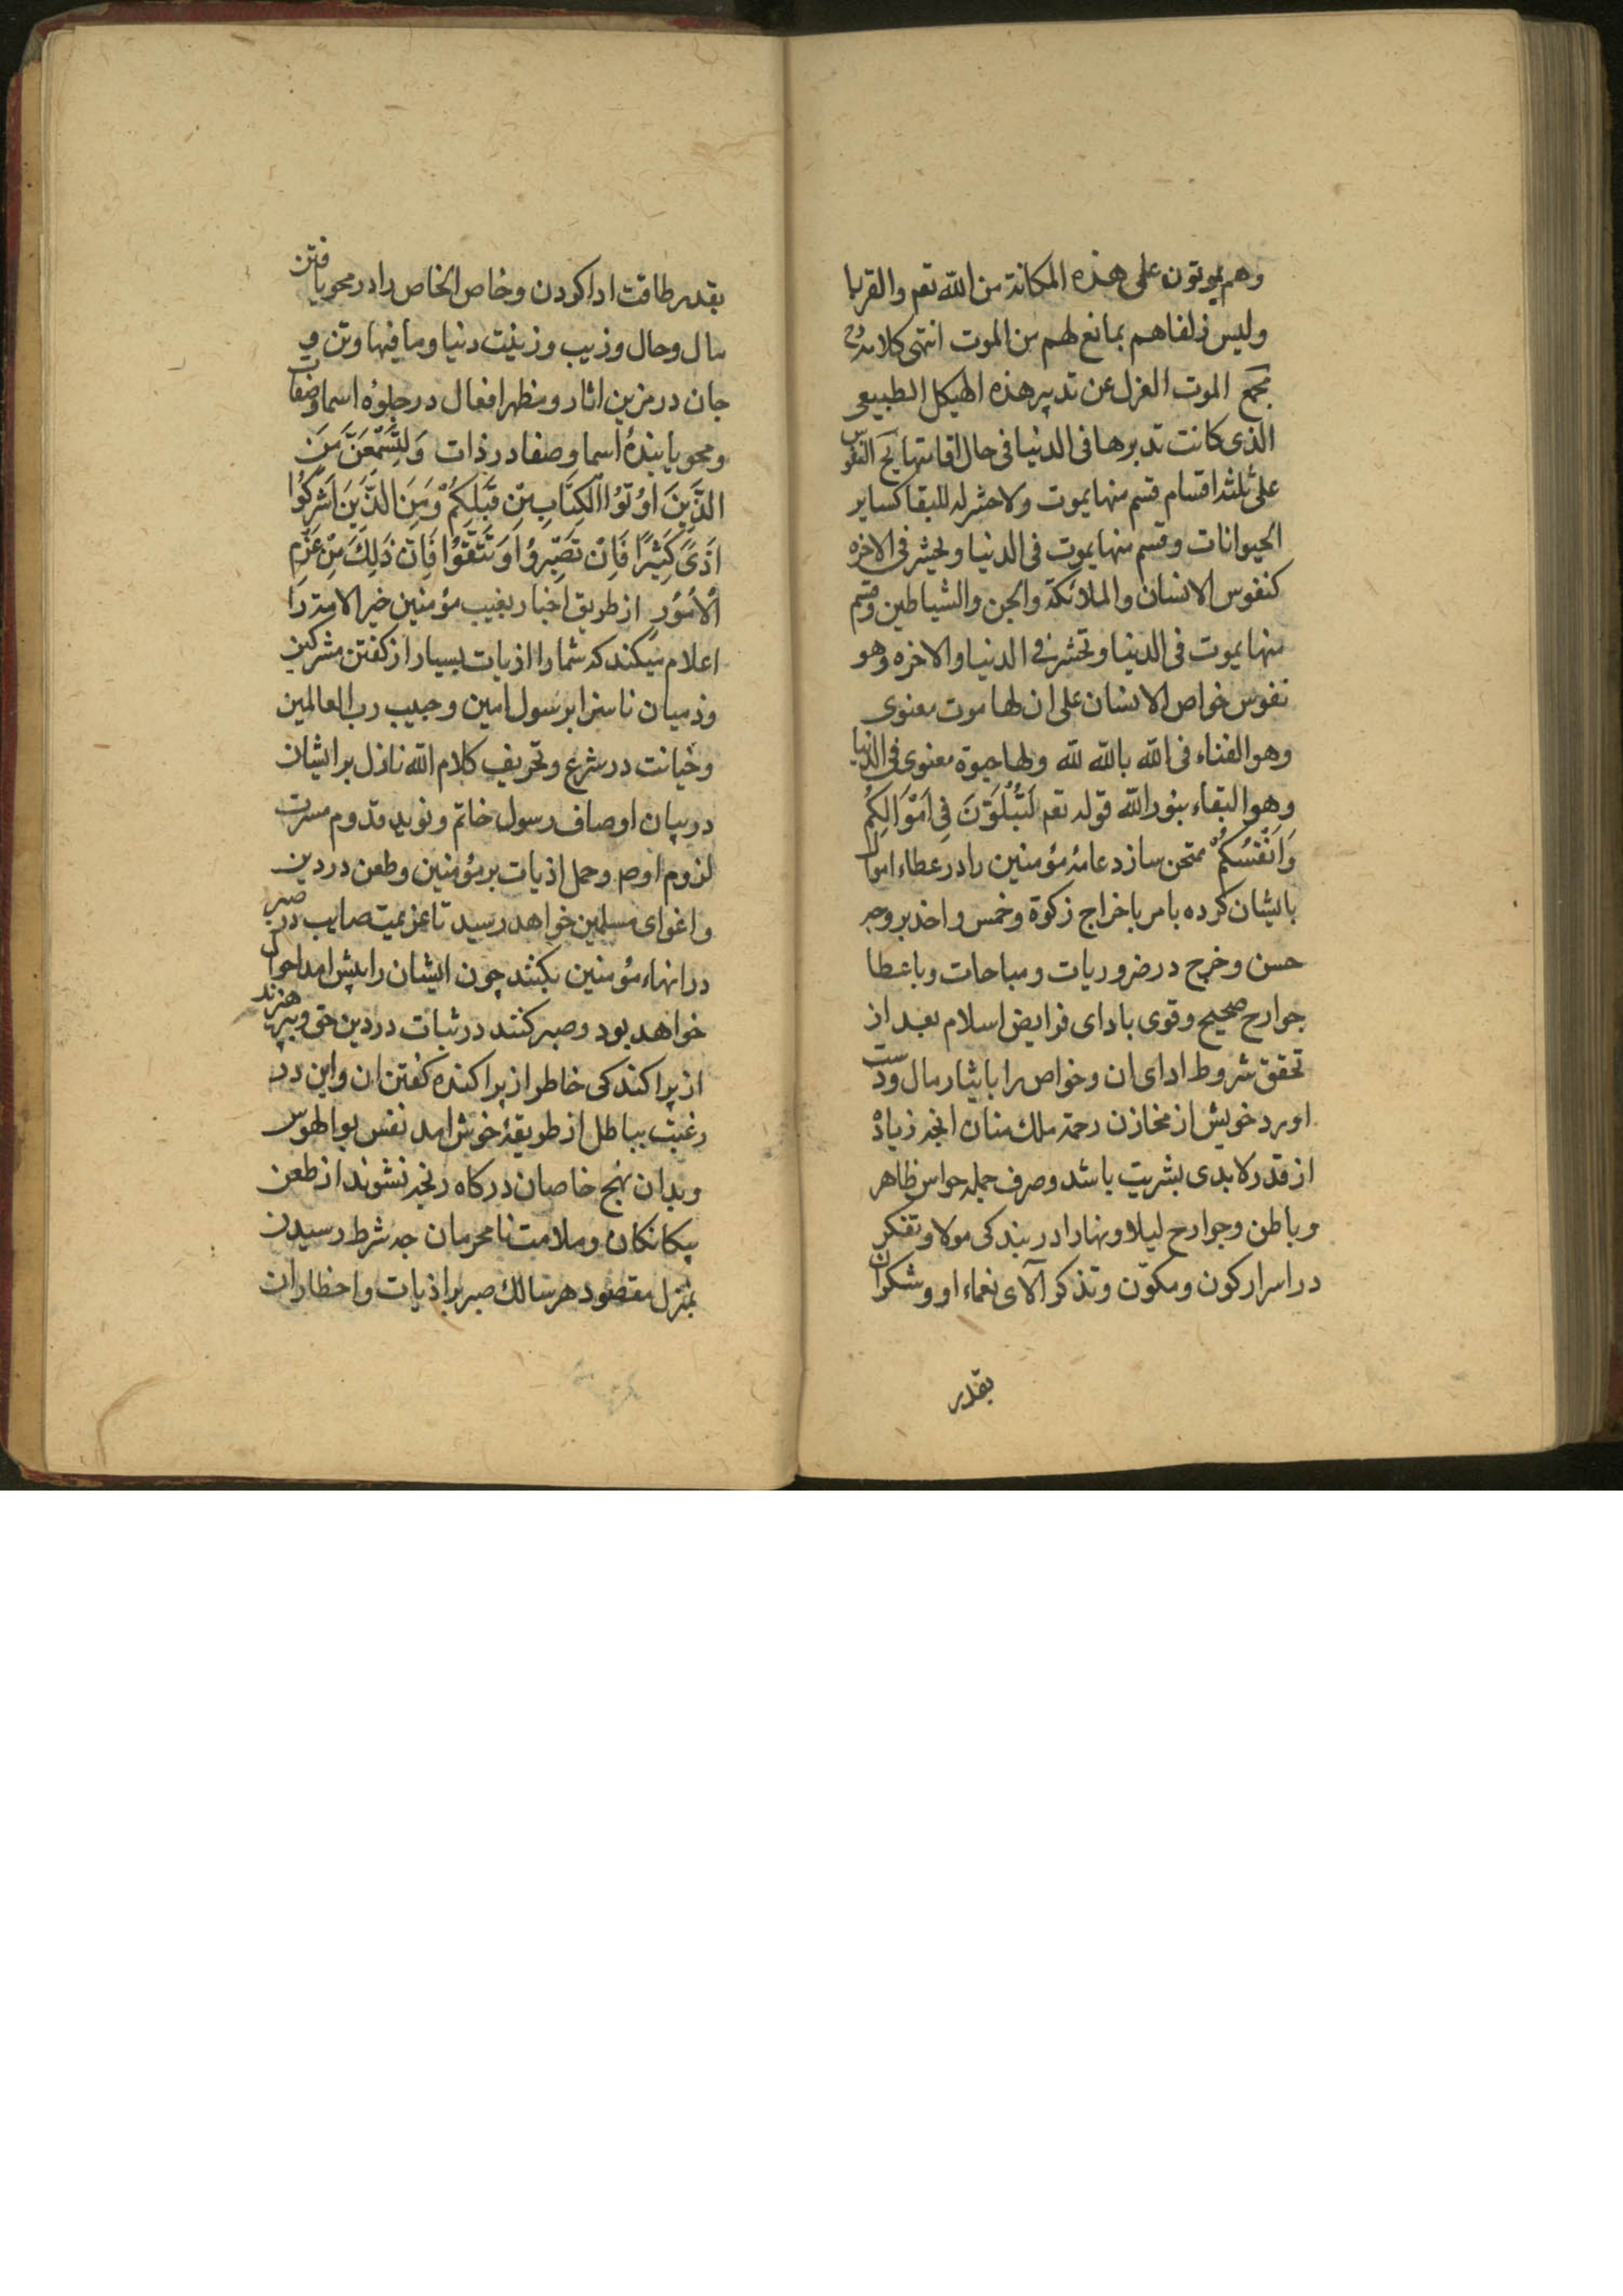 وهم يموتون على هذه المكانة من الله تعم والقربا
وليس زلفاهم بمانع لهم من الموت انتهى كلامه
مجمع الموت العزل عن تدبير هذه الهيكل الطبيعى
الذى كانت تدبرها فى الدنيا فى حال اقامتها النفوس
على ثلثه اقسام قسم منها يموت ولا حشر له للبقا كساير
الحيوانات وقسم منها يموت فى الدنيا ويحشر فى الاخره
كنفوس الانسان والملائكة والجن والشياطين وقسم
منها يموت فى الدنيا وتحشر فى الدنيا والاخره وهو
نفوس خواص الانسان على ان لها موت معنوى
وهو الفناء فى الله بالله لله ولها حيوة معنوى فى الدنيا
وهو البقاء بنور الله قوله تعم لَتُبْلَوُنَّ فِى اَمْوَالِكُمْ
وَاَنْفُسِكُمْ ممتحن سازد عامهٔ مؤمنين را در عطاء اموال
بايشان كرده بامر باخراج زكوة وخمس واخذ بر وجه
حسن وخرج در ضروريات ومباحات وباعطا
جوارح صحيح وقوى باداى فرايض اسلام بعد از
تحقق شروط اداى ان وخواص را بايثار مال ودست
اورد خويش از مخازن رحمة ملك منان انچه زياده
از قدر لابدى بشريت باشد وصرف جمله حواس ظاهر
وباطن وجوارح ليلا ونهارا در بندكى مولا وتفكر
در اسرار كون ومكوّن وتذكر آلاى نعماء او وشكران
بقدر
بقدر طاقت ادا كردن وخاص الخاص را در محو يافتن
مال وحال وزيب وزينت دنيا وما فيها وتن و
جان در مزين اثار ومظهر افعال در جلوهٔ اسما وصفات
ومحو يابندهٔ اسما وصفات در ذات وَلَتَسْمَعُنَّ مِنَ
الَّذِينَ اُوتُوا الْكِتَابَ مِنْ قَبْلِكُمْ وَمِنَ الَّذِينَ اَشْرَكُوا
اَذًى كَثِيرًا فَاِنْ تَصْبِرُوا وَتَتَّقُوا فَاِنَّ ذَلِكَ مِنْ عَزْمِ
الْاُمُورِ از طريق اخبار بغيب مؤمنين خير الامة را
اعلام ميكند كه شما را اذيات بسيار از كفتن مشركين
وذميان ناسزا بر رسول امين وحبيب رب العالمين
وخيانت در شرع وتحريف كلام الله نازل بر ايشان
در بيان اوصاف رسول خاتم ونويد قدوم مسرت
لزوم اوص وحمل اذيات بر مؤمنين وطعن در دين
واغواى مسلمين خواهد رسيد تا عزيمت صايب در صبر
در انهاء مؤمنين بكنند چون ايشان را پيش امد احوال
خواهد بود وصبر كنند در ثبات در دين حق وبپرهيزند
از پراكندكى خاطر از پراكنده كفتن ان واين در
رغبت بباطل از طريقهٔ خوش امد نفس بوالهوس
وبدان نهج خاصان دركاه رنجه نشوند از طعن
بيكانكان وملامت نامحرمان چه شرط رسيدن
بمنزل مقصود هر سالك صبر بر اذيات واخطار ات